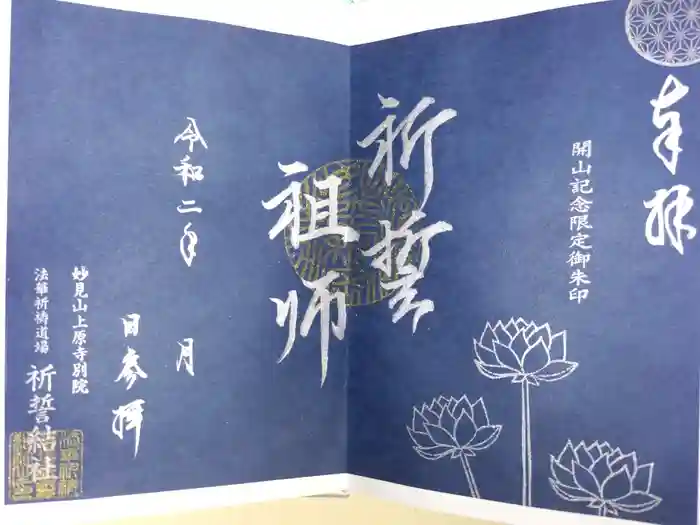 奉拝
開山記念限定御朱印
祈誓
祖師
令和二年
月
日参拝
妙見山上原寺別院
法華祈祷道場
祈誓結社